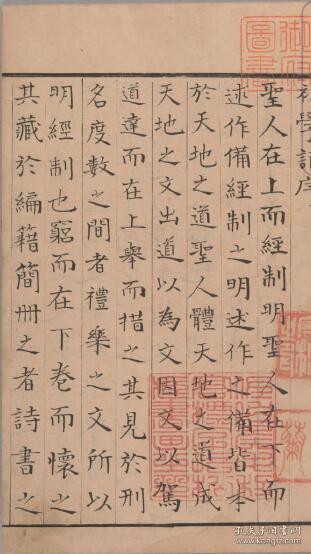 初學記序
聖人在上而經制明聖人在下而
述作備經制之明述作之備皆本
於天地之道聖人體天地之道成
天地之文出道以為文因文以駕
道達而在上舉而措之其見於刑
名度數之間者禮樂之文所以
明經制也窮而在下卷而懷之
其藏於編籍簡冊之者詩書之
御府圖書
孔夫子旧书网